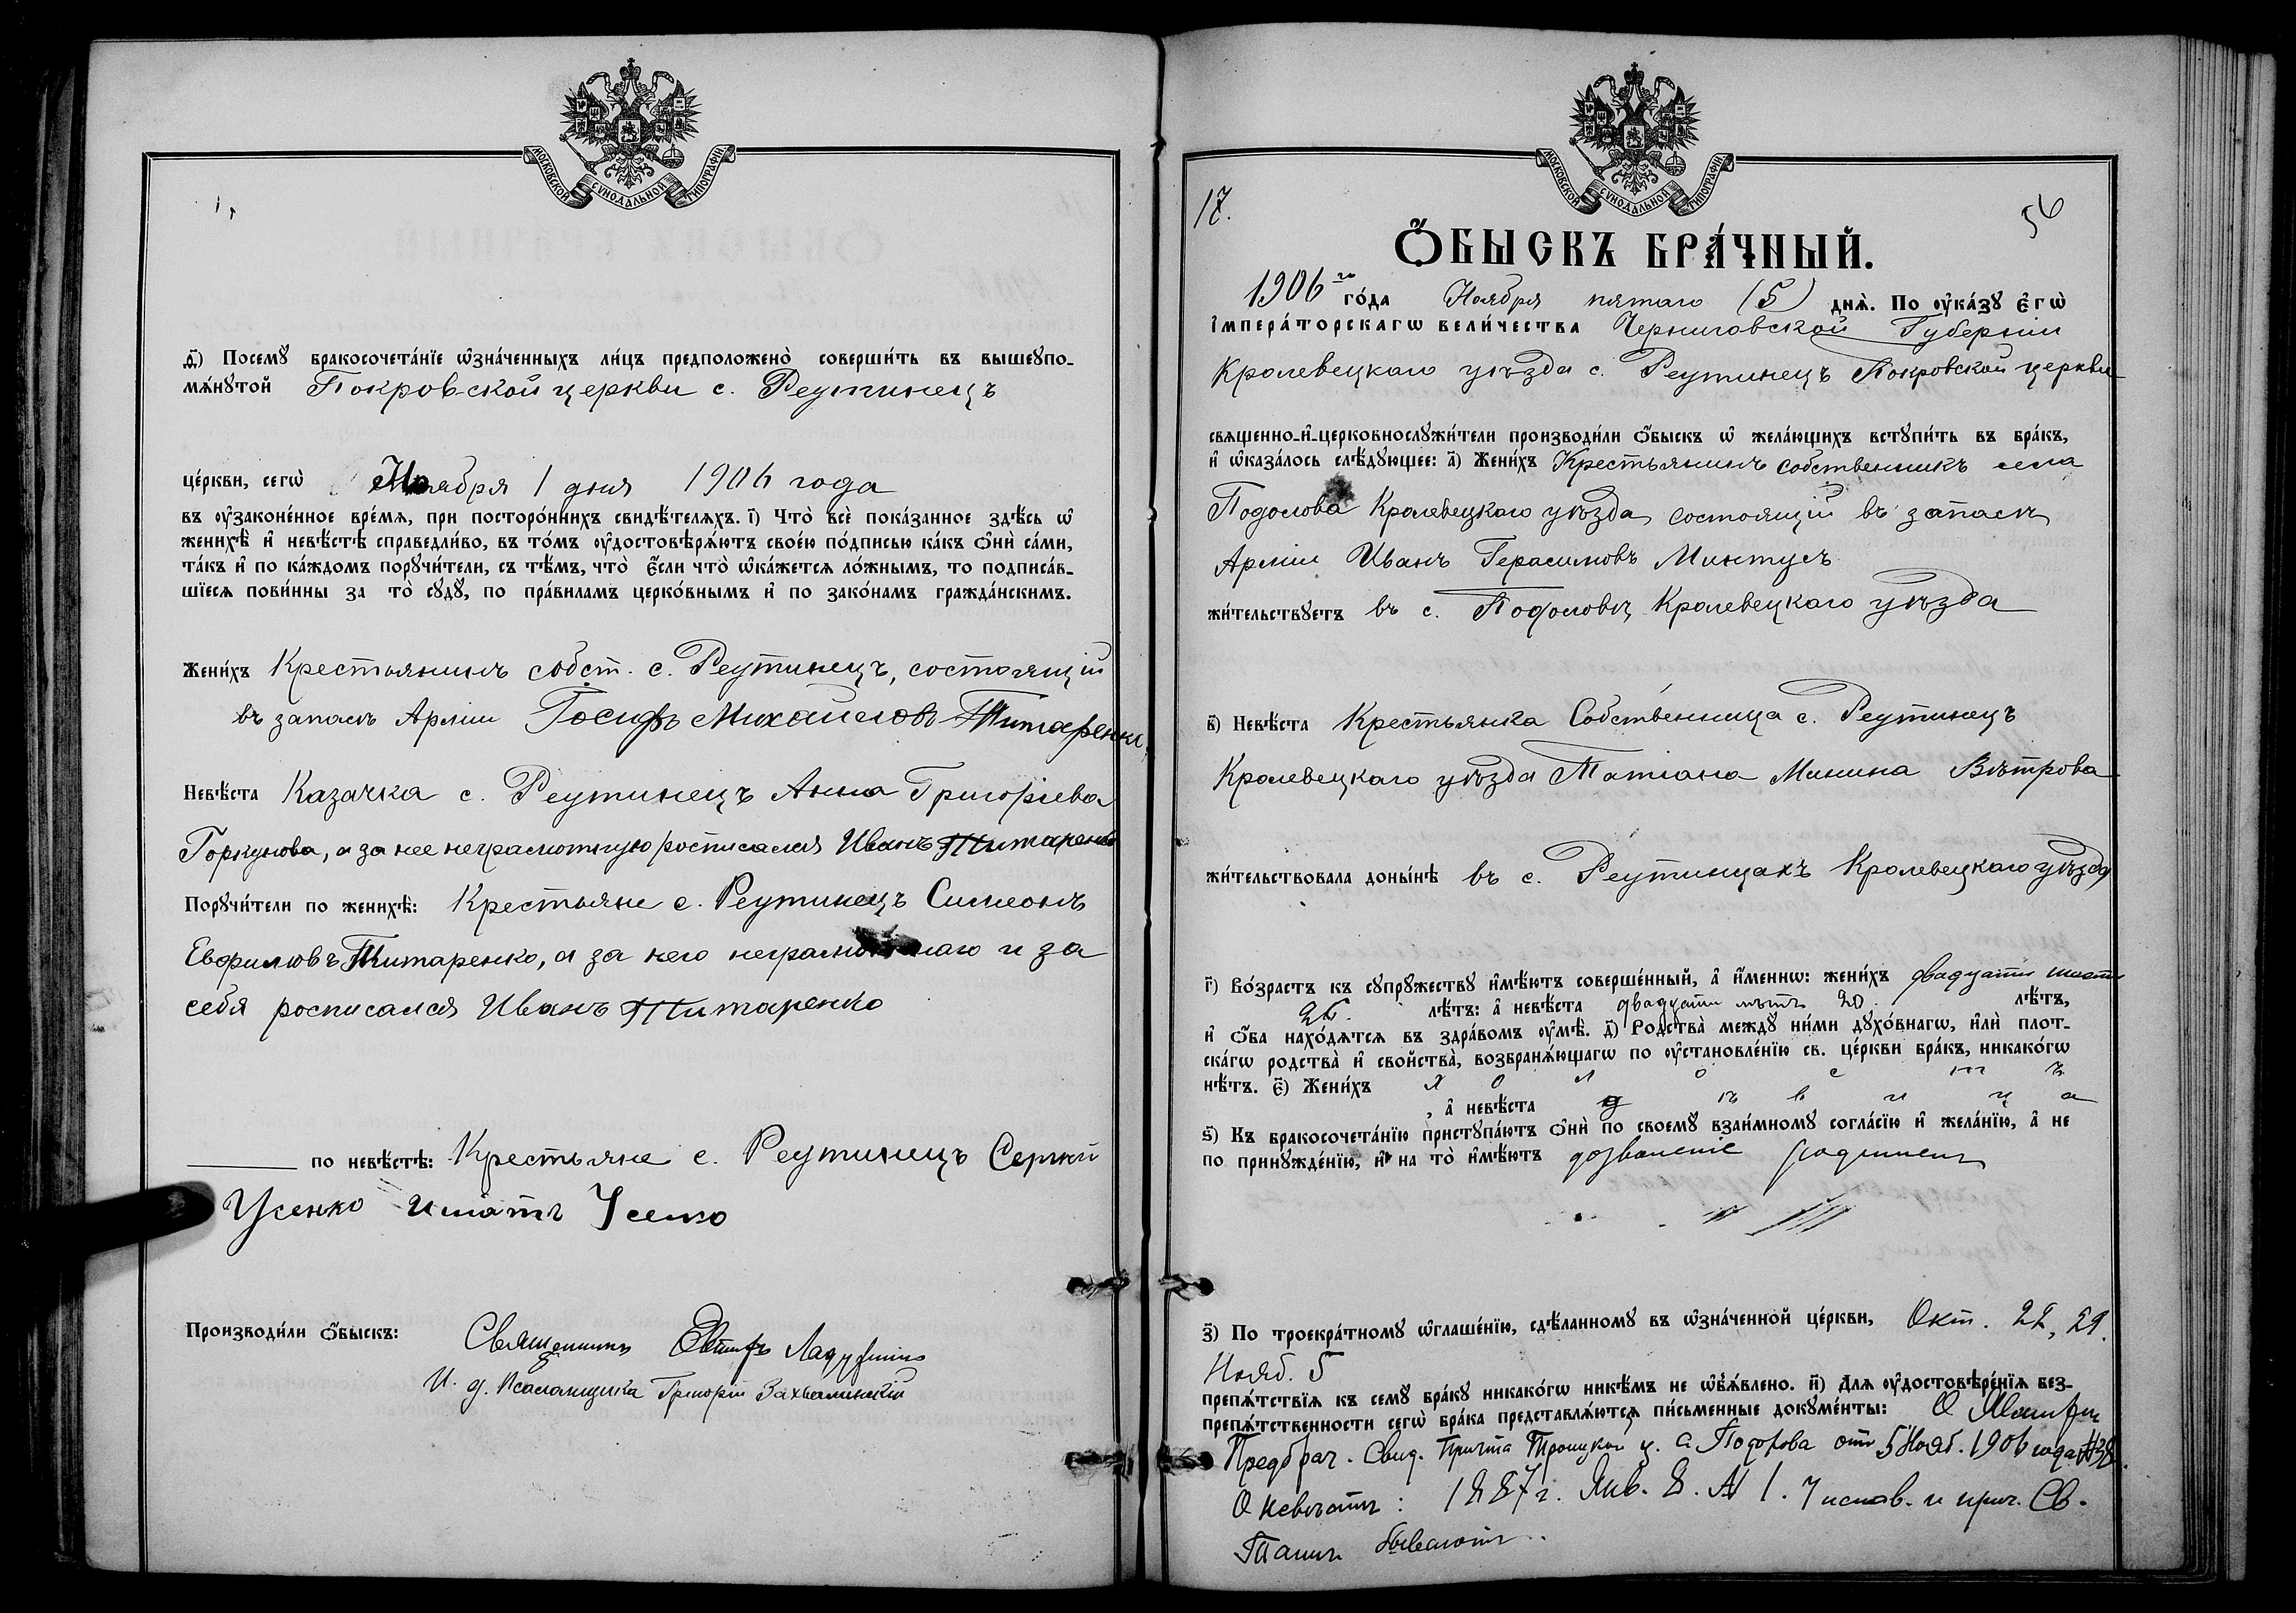 МОСКОВСКОЙ СѴНОДАЛЬНОЙ ТИПОГРАФІИ
д҃і) Посемꙋ бракосочета́нїе ѡ҆зна́ченныхъ ли́цъ предположено̀ соверши́ть въ вышеупо-
мѧ́нутой Покровской церкви с. Реутинецъ
це́ркви, сегѡ̀ Ноября 1 дня 1906 года
въ ᲂу҆законе́нное вре́мѧ, при посторо́ннихъ свидѣ́телѧхъ. і҃) Что̀ всѐ пока́занное здѣ́сь ѡ҆
женихѣ̀ и҆ невѣ́стѣ справедли́во, въ то́мъ ᲂу҆достовѣрѧ́ютъ свое́ю по́дписью ка́къ ѻ҆нѝ са́ми,
та́къ и҆ по ка́ждомъ поручи́тели, съ тѣ́мъ, что̀ є҆́сли что̀ ѡ҆ка́жется ло́жнымъ, то подписа́в-
шїесѧ пови́нны за то̀ сꙋдꙋ̀, по пра́виламъ церко́внымъ и҆ по зако́намъ гражда́нскимъ.
Жени́хъ Крестьянинъ собст. с. Реутинецъ, состоящій
въ запасѣ Арміи Іосифъ Михайловъ Титаренко
Невѣ́ста Казачка с. Реутинецъ Анна Григоріева
Горкунова, а за нее неграмотную росписался Иванъ Титаренко
Порꙋчи́тели по женихѣ̀: Крестьяне с. Реутинецъ Симеонъ
Евфимовъ Титаренко, а за него неграмотнаго и за
себя росписался Иванъ Титаренко
по невѣ́стѣ: Крестьяне с. Реутинецъ Сергій
Усенко Усенко
Производи́ли ѻ҆́быскъ: Священникъ
И. д. Псаломщика Григорій Захвалинскій
МОСКОВСКОЙ СѴНОДАЛЬНОЙ ТИПОГРАФІИ
17. 56
Ѻ҆́БЫСКЪ БРА́ЧНЫЙ.
1906 го го́да Ноября пятаго (5) днѧ̀. По ᲂу҆ка́зꙋ є҆гѡ̀
і҆мпера́торскагѡ вели́чества Черниговской Губерніи
Кролевецкаго уѣзда с. Реутинецъ Покровской церкви
свѧщенно-и҆-церковнослꙋжи́тели производи́ли ѻ҆́быскъ ѡ҆ жела́ющихъ встꙋпи́ть въ бра́къ,
и҆ ѡ҆каза́лось слѣ́дꙋющее: а҃) Жени́хъ Крестьянинъ собственникъ села
Подолова Кролевецкаго уѣзда, состоящій въ запасѣ
Арміи Иванъ Герасимовъ Минтусъ
жи́тельствꙋетъ въ с. Подоловѣ, Кролевецкаго уѣзда
в҃) Невѣ́ста Крестьянка Собственница с. Реутинецъ
Кролевецкаго уѣзда Татіана Минина Вѣтрова
жи́тельствовала доны́нѣ въ с. Реутинцахъ Кролевецкаго уѣзда
г҃) Во́зрастъ къ сꙋпрꙋ́жествꙋ и҆мѣ́ютъ соверше́нный, а҆ и҆́меннѡ: жени́хъ двадцати шести
26. лѣ́тъ: а҆ невѣ́ста двадцати лѣтъ 20. лѣ́тъ,
и҆ ѻ҆́ба нахо́дѧтся въ здра́вомъ ᲂу҆мѣ̀. д҃) Родства̀ междꙋ ни́ми дꙋхо́внагѡ, и҆лѝ плот-
ска́гѡ родства̀ и҆ свойства̀, возбранѧ́ющагѡ по ᲂу҆становле́нїю св. це́ркви бра́къ, никако́гѡ
нѣ́тъ. є҃) Жени́хъ х о л о с т ъ
, а҆ невѣ́ста д ѣ в и ц а
ѕ҃) Къ бракосочета́нїю пристꙋпа́ютъ ѻ҆нѝ по своемꙋ̀ взаи́мномꙋ согла́сїю и҆ жела́нїю, а҆ не
по принꙋжде́нїю, и҆ на то̀ и҆мѣ́ютъ дозволеніе
з҃) По троекра́тномꙋ ѡ҆глаше́нїю, сдѣ́ланномꙋ въ ѡ҆зна́ченной це́ркви, Окт. 22, 29.
Нояб. 5
препѧ́тствїѧ къ семꙋ̀ бра́кꙋ никако́гѡ никѣ́мъ не ѡ҆б̾ѧ́влено. и҃) Длѧ ᲂу҆достовѣре́нїѧ без-
препѧ́тственности сегѡ̀ бра́ка представлѧ́ютсѧ пи́сьменные докꙋме́нты: О
Предбрач. Свид. Причта Троицкой ц. с. Подолова отъ 5 Нояб. 1906 года № 38.
О невѣстѣ: 1887 г. Янв. 8. № 1. У испов. и прич. Св.
Таинъ бываютъ.